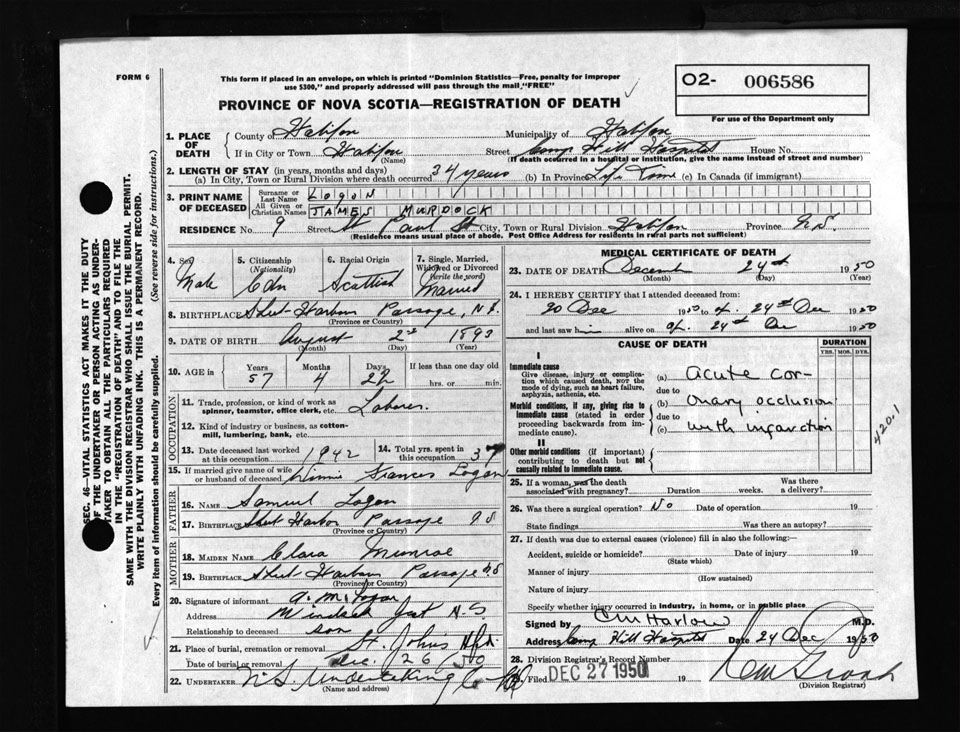 FORM 6
This form if placed in an envelope, on which is printed "Dominion Statistics—Free, penalty for improper
use $300," and properly addressed will pass through the mail "FREE"
PROVINCE OF NOVA SCOTIA—REGISTRATION OF DEATH
O2- 006586
For use of the Department only
SEC. 46—VITAL STATISTICS ACT MAKES IT THE DUTY
OF THE UNDERTAKER OR PERSON ACTING AS UNDER-
TAKER TO OBTAIN ALL THE PARTICULARS REQUIRED
IN THE "REGISTRATION OF DEATH" AND TO FILE THE
SAME WITH THE DIVISION REGISTRAR WHO SHALL ISSUE THE BURIAL PERMIT.
WRITE PLAINLY WITH UNFADING INK. THIS IS A PERMANENT RECORD.
Every item of information should be carefully supplied. (See reverse side for instructions.)
1. PLACE OF DEATH
County of Halifax Municipality of Halifax
If in City or Town Halifax (Name) Street Camp Hill Hospital House No.
(If death occurred in a hospital or institution, give the name instead of street and number)
2. LENGTH OF STAY (in years, months and days)
(a) In City, Town or Rural Division where death occurred 34 years (b) In Province Life Time (c) In Canada (if immigrant)
3. PRINT NAME OF DECEASED
Surname or Last Name LOGAN
All Given or Christian Names JAMES MURDOCK
RESIDENCE No. 9 Street St Paul St City, Town or Rural Division Halifax Province N.S.
(Residence means usual place of abode. Post Office Address for residents in rural parts not sufficient)
4. Sex Male
5. Citizenship (Nationality) Cdn
6. Racial Origin Scottish
7. Single, Married, Widowed or Divorced (write the word) Married
8. BIRTHPLACE Sheet Harbour Passage, N.S.
(Province or Country)
9. DATE OF BIRTH August 2nd 1893
(Month) (Day) (Year)
10. AGE in Years 57 Months 4 Days 22 If less than one day old hrs. or min.
OCCUPATION
11. Trade, profession, or kind of work as spinner, teamster, office clerk, etc. Laborer
12. Kind of industry or business, as cotton-mill, lumbering, bank, etc.
13. Date deceased last worked at this occupation 1942
14. Total yrs. spent in this occupation 37
15. If married give name of wife or husband of deceased Winnie Frances Logan
FATHER
16. NAME Samuel Logan
17. BIRTHPLACE Sheet Harbor Passage N.S
(Province or Country)
MOTHER
18. MAIDEN NAME Clara Munroe
19. BIRTHPLACE Sheet Harbour Passage N.S
(Province or Country)
20. Signature of informant A. M. Logan
Address Windsor Jct N.S
Relationship to deceased son
21. Place of burial, cremation or removal St. Johns Hfx.
Date of burial or removal Dec. 26/50
22. UNDERTAKER N.S. Undertaking Co
(Name and address)
MEDICAL CERTIFICATE OF DEATH
23. DATE OF DEATH December 24th 1950
(Month) (Day) (Year)
24. I HEREBY CERTIFY that I attended deceased from:
20 Dec 1950 to 24th Dec 1950
and last saw him alive on 24th Dec 1950
CAUSE OF DEATH
DURATION
YRS. MOS. DYS.
I
Immediate cause
Give disease, injury or complication which caused death, NOT the mode of dying, such as heart failure, asphyxia, asthenia, etc.
(a) Acute cor-
due to
Morbid conditions, if any, giving rise to immediate cause (stated in order proceeding backwards from immediate cause).
(b) onary occlusion
due to
(c) with infarction
II
Other morbid conditions (if important) contributing to death but not causally related to immediate cause.
420.1
25. If a woman, was the death associated with pregnancy? Duration weeks. Was there a delivery?
26. Was there a surgical operation? No Date of operation 19
State findings Was there an autopsy?
27. If death was due to external causes (violence) fill in also the following:—
Accident, suicide or homicide? Date of injury 19
(State which)
Manner of injury
(How sustained)
Nature of injury
Specify whether injury occurred in industry, in home, or in public place
Signed by CM Harlow M.D.
Address Camp Hill Hospital Date 24 Dec 1950
28. Division Registrar's Record Number
Filed DEC 27 1950 19
(Division Registrar)